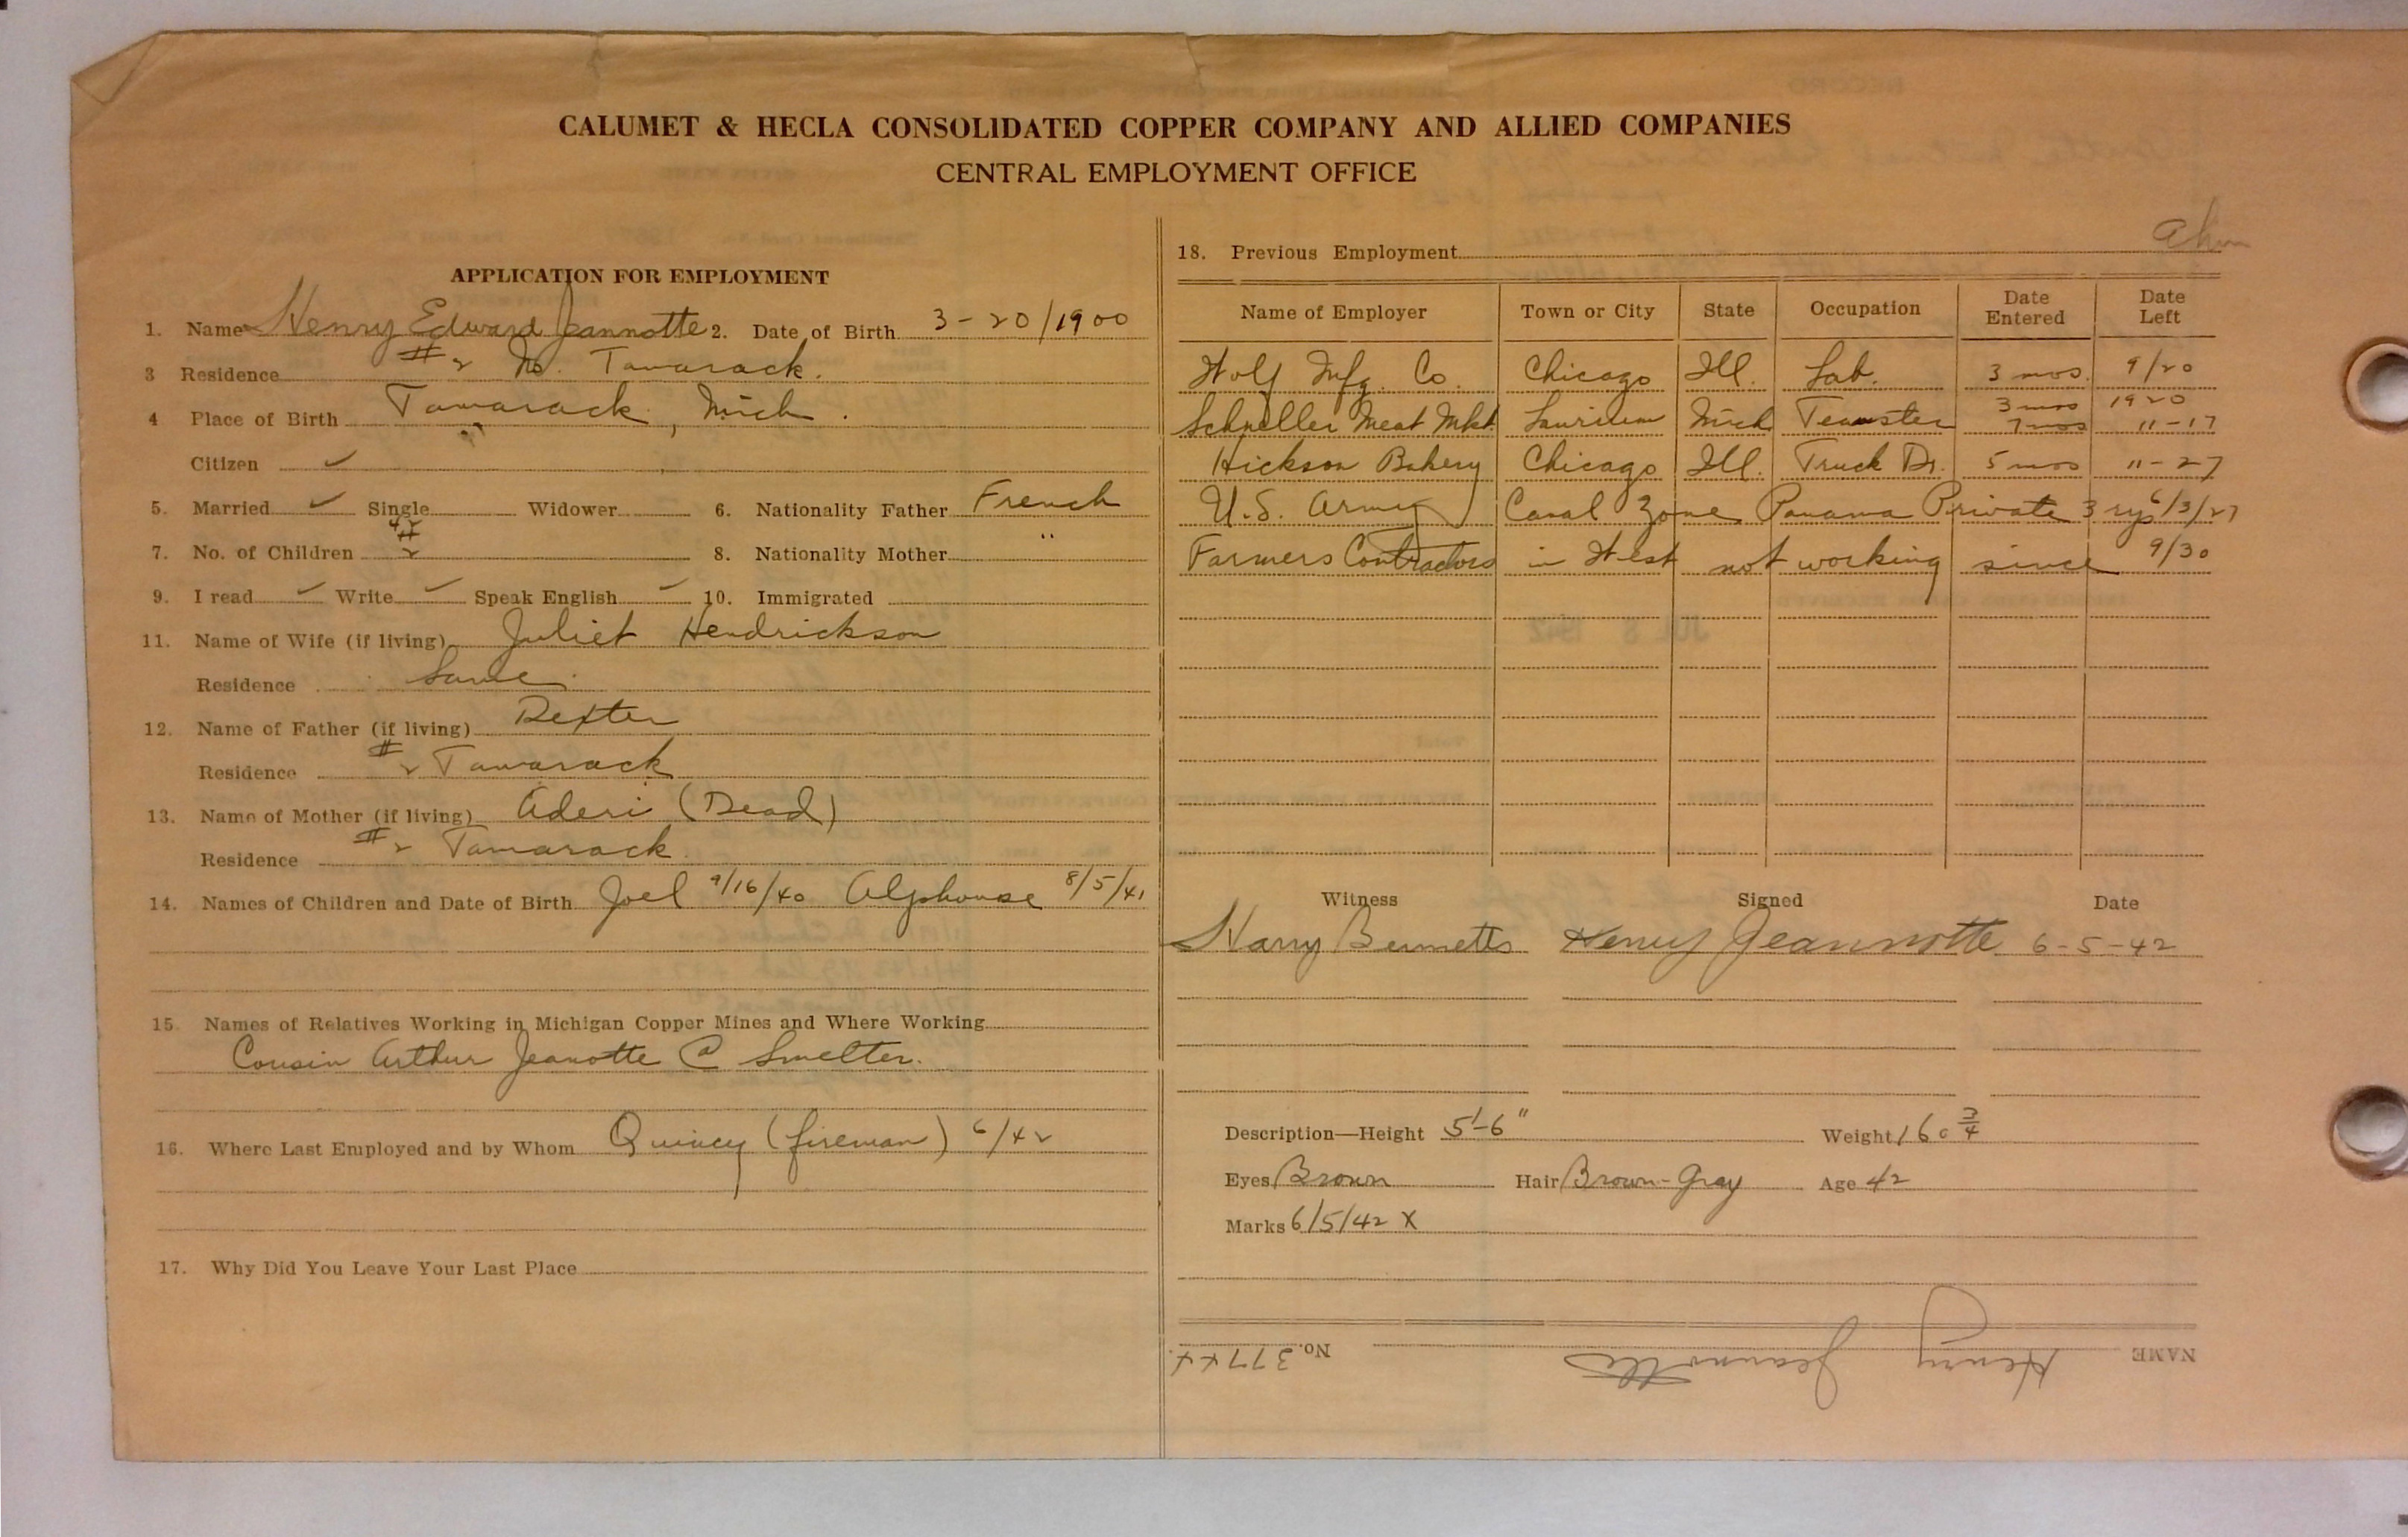 CALUMET & HECLA CONSOLIDATED COPPER COMPANY AND ALLIED COMPANIES
CENTRAL EMPLOYMENT OFFICE
APPLICATION FOR EMPLOYMENT
1. Name Henry Edward Jeannotte 2. Date of Birth 3-20/1900
3 Residence #2 No. Tamarack.
4 Place of Birth Tamarack, Mich.
Citizen ✓
5. Married ✓ Single Widower 6. Nationality Father French
7. No. of Children 2 8. Nationality Mother "
9. I read ✓ Write ✓ Speak English ✓ 10. Immigrated
11. Name of Wife (if living) Juliet Hendrickson
Residence Same
12. Name of Father (if living) Dexter
Residence #2 Tamarack
13. Name of Mother (if living) Aderi (Dead)
Residence #2 Tamarack
14. Names of Children and Date of Birth Joel 9/16/40 Alphonse 8/5/41
15. Names of Relatives Working in Michigan Copper Mines and Where Working
Cousin Arthur Jeanotte @ Smelter.
16. Where Last Employed and by Whom Quincy (fireman) 6/42
17. Why Did You Leave Your Last Place
18. Previous Employment
Name of Employer Town or City State Occupation Date Entered Date Left
Wolf Mfg. Co. Chicago Ill. Lab. 3 mos. 9/20
Schneller Meat Mkt Laurium Mich Teamster 3 mos 1920
7 mos 11-17
Hickson Bakery Chicago Ill. Truck Dr. 5 mos 11-27
U.S. Army Canal Zone Panama Private 3 yrs 6/3/27
Farmers Contractors in West not working since 9/30
Witness Signed Date
Harry Bennetts Henry Jeannotte 6-5-42
Description—Height 5'-6" Weight 160 3/4
Eyes Brown Hair Brown-Gray Age 42
Marks 6/5/42 X
NAME Henry Jeannotte No. 37744